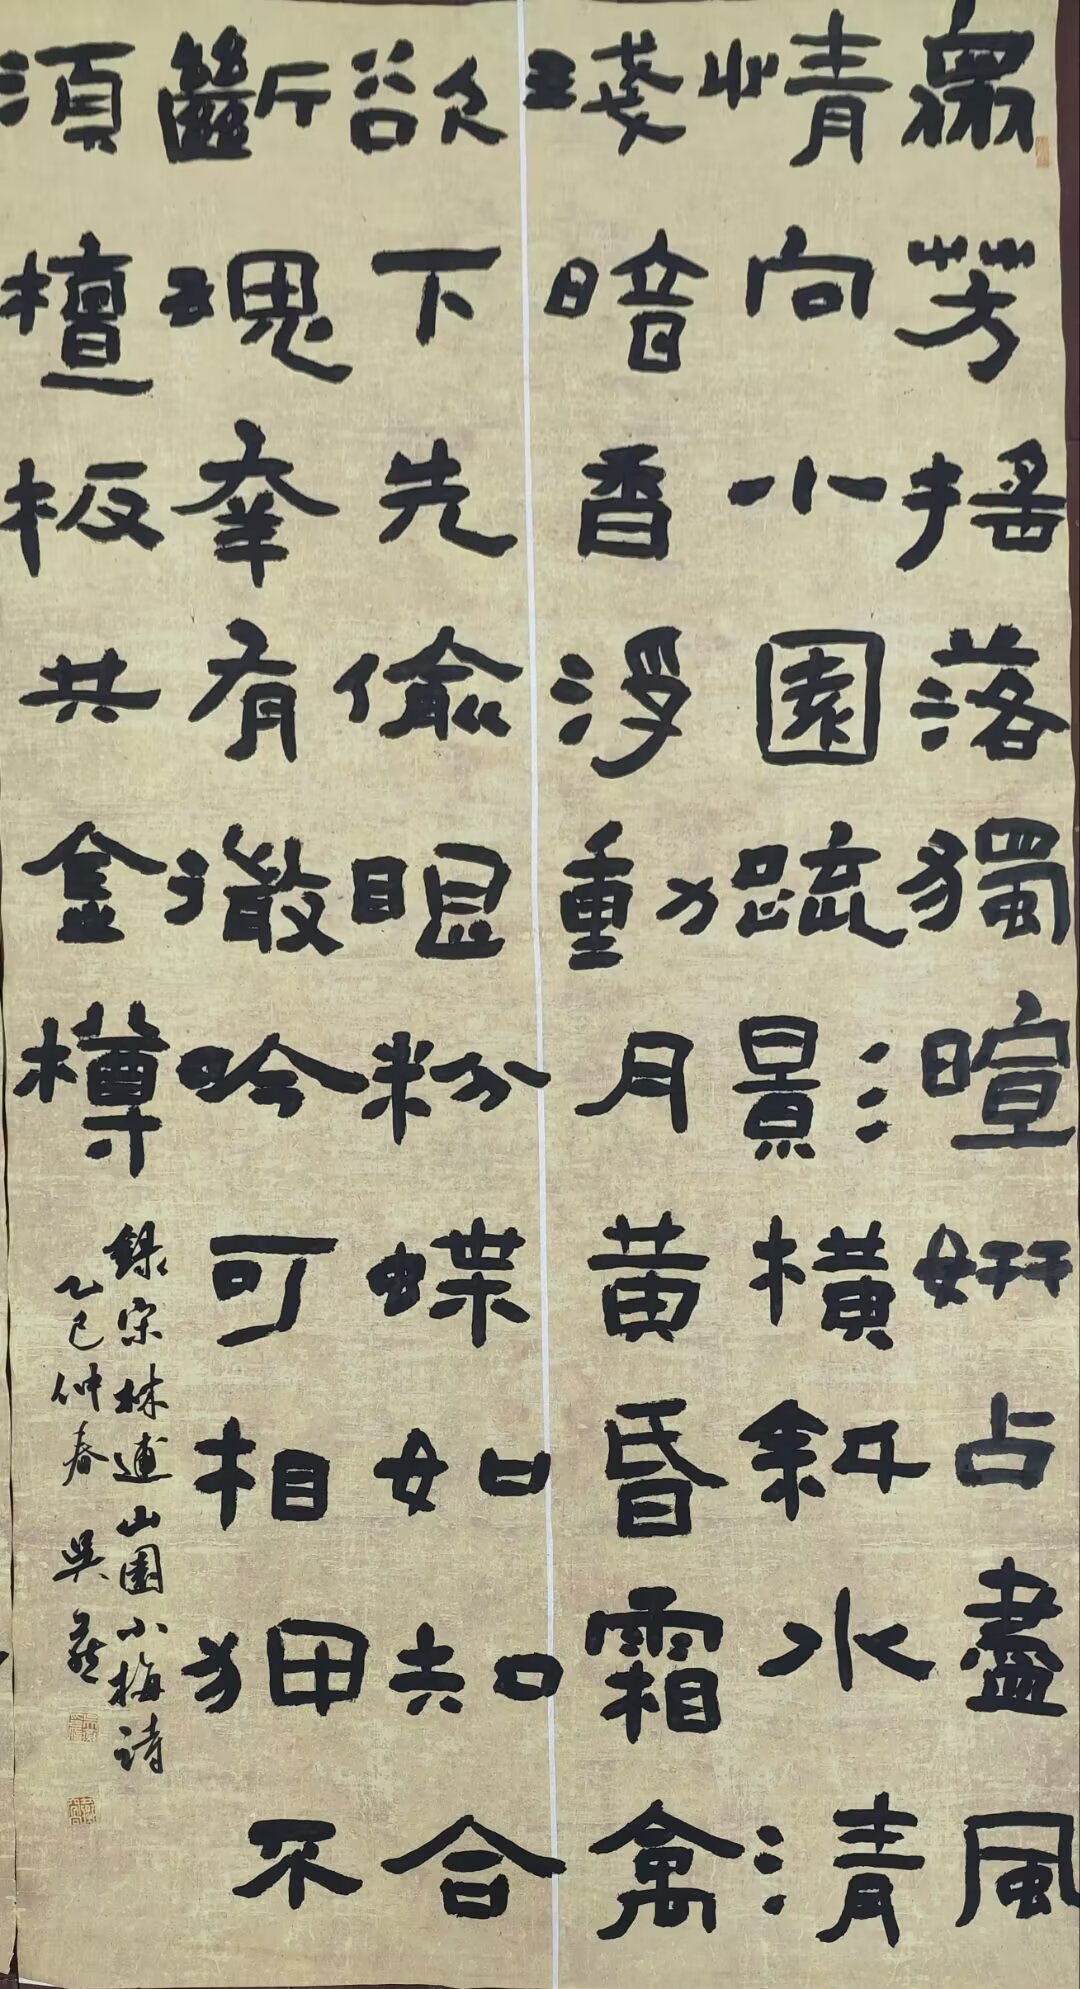 眾芳搖落獨暄妍占盡風
情向小園疏影橫斜水清
淺暗香浮動月黃昏霜禽
欲下先偷眼粉蝶如知合
斷魂幸有微吟可相狎不
須檀板共金樽
錄宋林逋山園小梅詩
乙巳仲春 吳